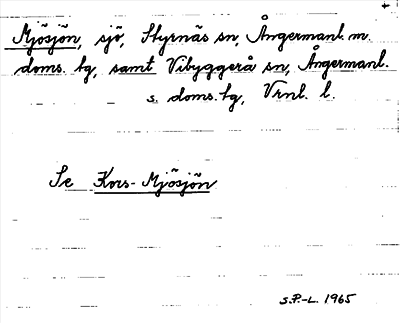 Mjösjön, sjö, Styrnäs sn, Ångermanl. m.
doms. tg, samt Vibyggerå sn, Ångermanl.
s. doms. tg, Vrnl. l.
Se Kors-Mjösjön
S.P.-L. 1965